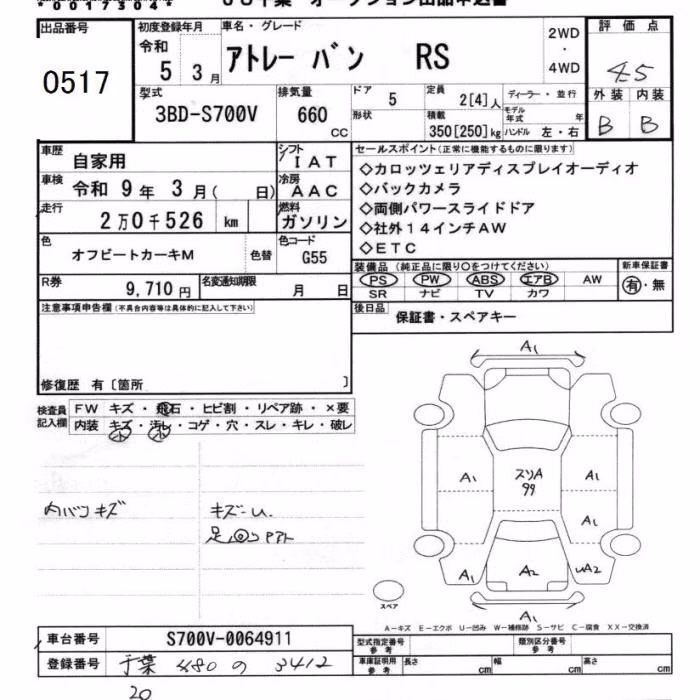 ＪＵ千葉 オークション出品申込書
出品番号
0517
初度登録年月
令和
5 3月
車名・グレード
アトレー バン RS
2WD
・
4WD
評価点
4.5
外装 内装
B B
型式
3BD-S700V
排気量
660
CC
ドア
5
形状
定員
2[4]人
積載
350[250]kg
ディーラー・並行
モデル年式 年
ハンドル 左・右
車歴
自家用
シフト
IAT
車検
令和 9年 3月( 日)
冷房
AAC
走行
2万0千526 km
燃料
ガソリン
色
オフビートカーキM
色替
色コード
G55
R券
9,710円
名変通知期限
月 日
セールスポイント(正常に機能するものに限ります)
◇カロッツェリアディスプレイオーディオ
◇バックカメラ
◇両側パワースライドドア
◇社外14インチAW
◇ETC
装備品 (純正品に限り○をつけてください)
PS PW ABS エアB AW
SR ナビ TV カワ
新車保証書
有・無
後日品
保証書・スペアキー
注意事項申告欄(不具合内容等は具体的に記入して下さい)
修復歴 有〔箇所 〕
検査員
記入欄
FW キズ・飛石・ヒビ割・リペア跡・×要
内装 キズ・汚レ・コゲ・穴・スレ・キレ・破レ
小 小
内バンキズ
キズ-U.
A1
A1
スソA
99
A1
A1
A1
A2
UA2
A1
スペア
A－キズ E－エクボ U－凹み W－補修跡 S－サビ C－腐食 XX－交換済
車台番号
S700V-0064911
登録番号
千葉 480 の 3412
20
型式指定番号
参考
類別区分番号
参考
車庫証明用
参考
長さ cm
幅 cm
高さ cm